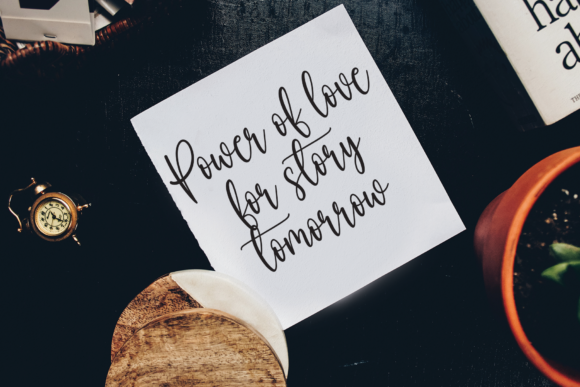 Power of love
for story
tomorrow